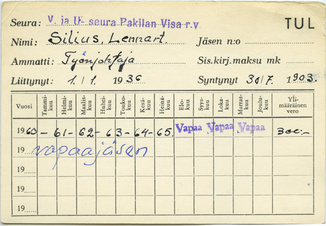 Seura: V. ja U. seura Pakilan Visa r.v TUL
Nimi: Silius, Lennart Jäsen n:o
Ammatti: Työnjohtaja Sis.kirj.maksu mk
Liittynyt: 1/1 1936 Syntynyt 30/7 1903.
Vuosi Tammi-kuu Helmi-kuu Maalis-kuu Huhti-kuu Touko-kuu Kesä-kuu Heinä-kuu Elo-kuu Syys-kuu Loka-kuu Marras-kuu Joulu-kuu Ylimääräinen vero
1960 – 61 – 62 – 63 – 64 – 65. Vapaa Vapaa Vapaa 300:-
19 vapaajäsen
19
19
19